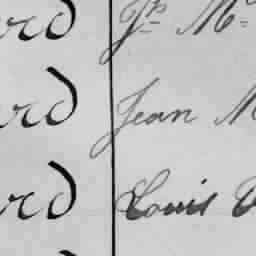 rd Jph M
rd Jean M
rd Louis